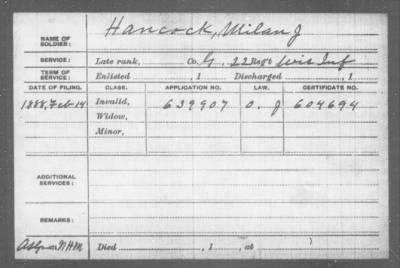 NAME OF SOLDIER: Hancock, Milan J
SERVICE: Late rank, Co. G, 22 Reg't Wis Inf
TERM OF SERVICE: Enlisted , 1 Discharged , 1
DATE OF FILING. CLASS. APPLICATION NO. LAW. CERTIFICATE NO.
1888, Feb 14 Invalid, 639907 O. J 604694
Widow,
Minor,
ADDITIONAL SERVICES:
REMARKS:
N.H.M. Died , 1 , at